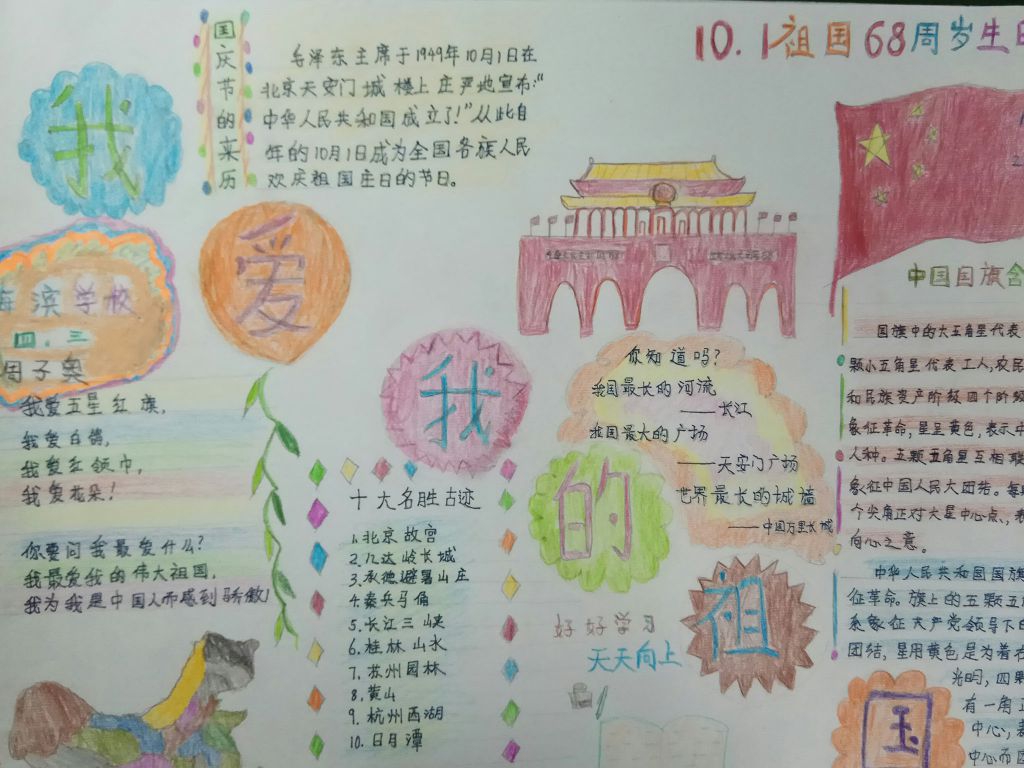 10.1祖国68周岁生日
国庆节的来历
毛泽东主席于1949年10月1日在
北京天安门城楼上庄严地宣布:“
中华人民共和国成立了!”从此自
年的10月1日成为全国各族人民
欢庆祖国庄日的节日。
我
爱
我
的
祖
国
海滨学校
四.三
周子奥
我爱五星红旗,
我爱白鸽,
我爱红领巾,
我爱花朵!
你要问我最爱什么?
我最爱我的伟大祖国,
我为我是中国人而感到骄傲!
十大名胜古迹
1.北京故宫
2.八达岭长城
3.承德避暑山庄
4.秦兵马俑
5.长江三峡
6.桂林山水
7.苏州园林
8.黄山
9.杭州西湖
10.日月潭
你知道吗?
我国最长的河流
——长江
我国最大的广场
——天安门广场
世界最长的城墙
——中国万里长城
好好学习
天天向上
中国国旗含
国旗中的大五角星代表
颗小五角星代表工人,农民
和民族资产阶级四个阶级
象征革命,星呈黄色,表示中
人种。五颗五角星互相联
象征中国人民大团结。每
个尖角正对大星中心点,表
向心之意。
中华人民共和国国旗
征革命。旗上的五颗五
系象征共产党领导下的
团结,星用黄色是为着在
光明,四颗
有一角正
中心,表
中心而团